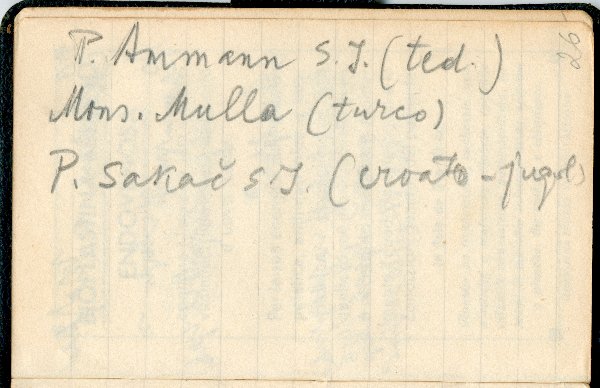 26
P. Ammann S.J. (ted.)
Mons. Mulla (turco)
P. Sakač S.J. (croato-jugosl)